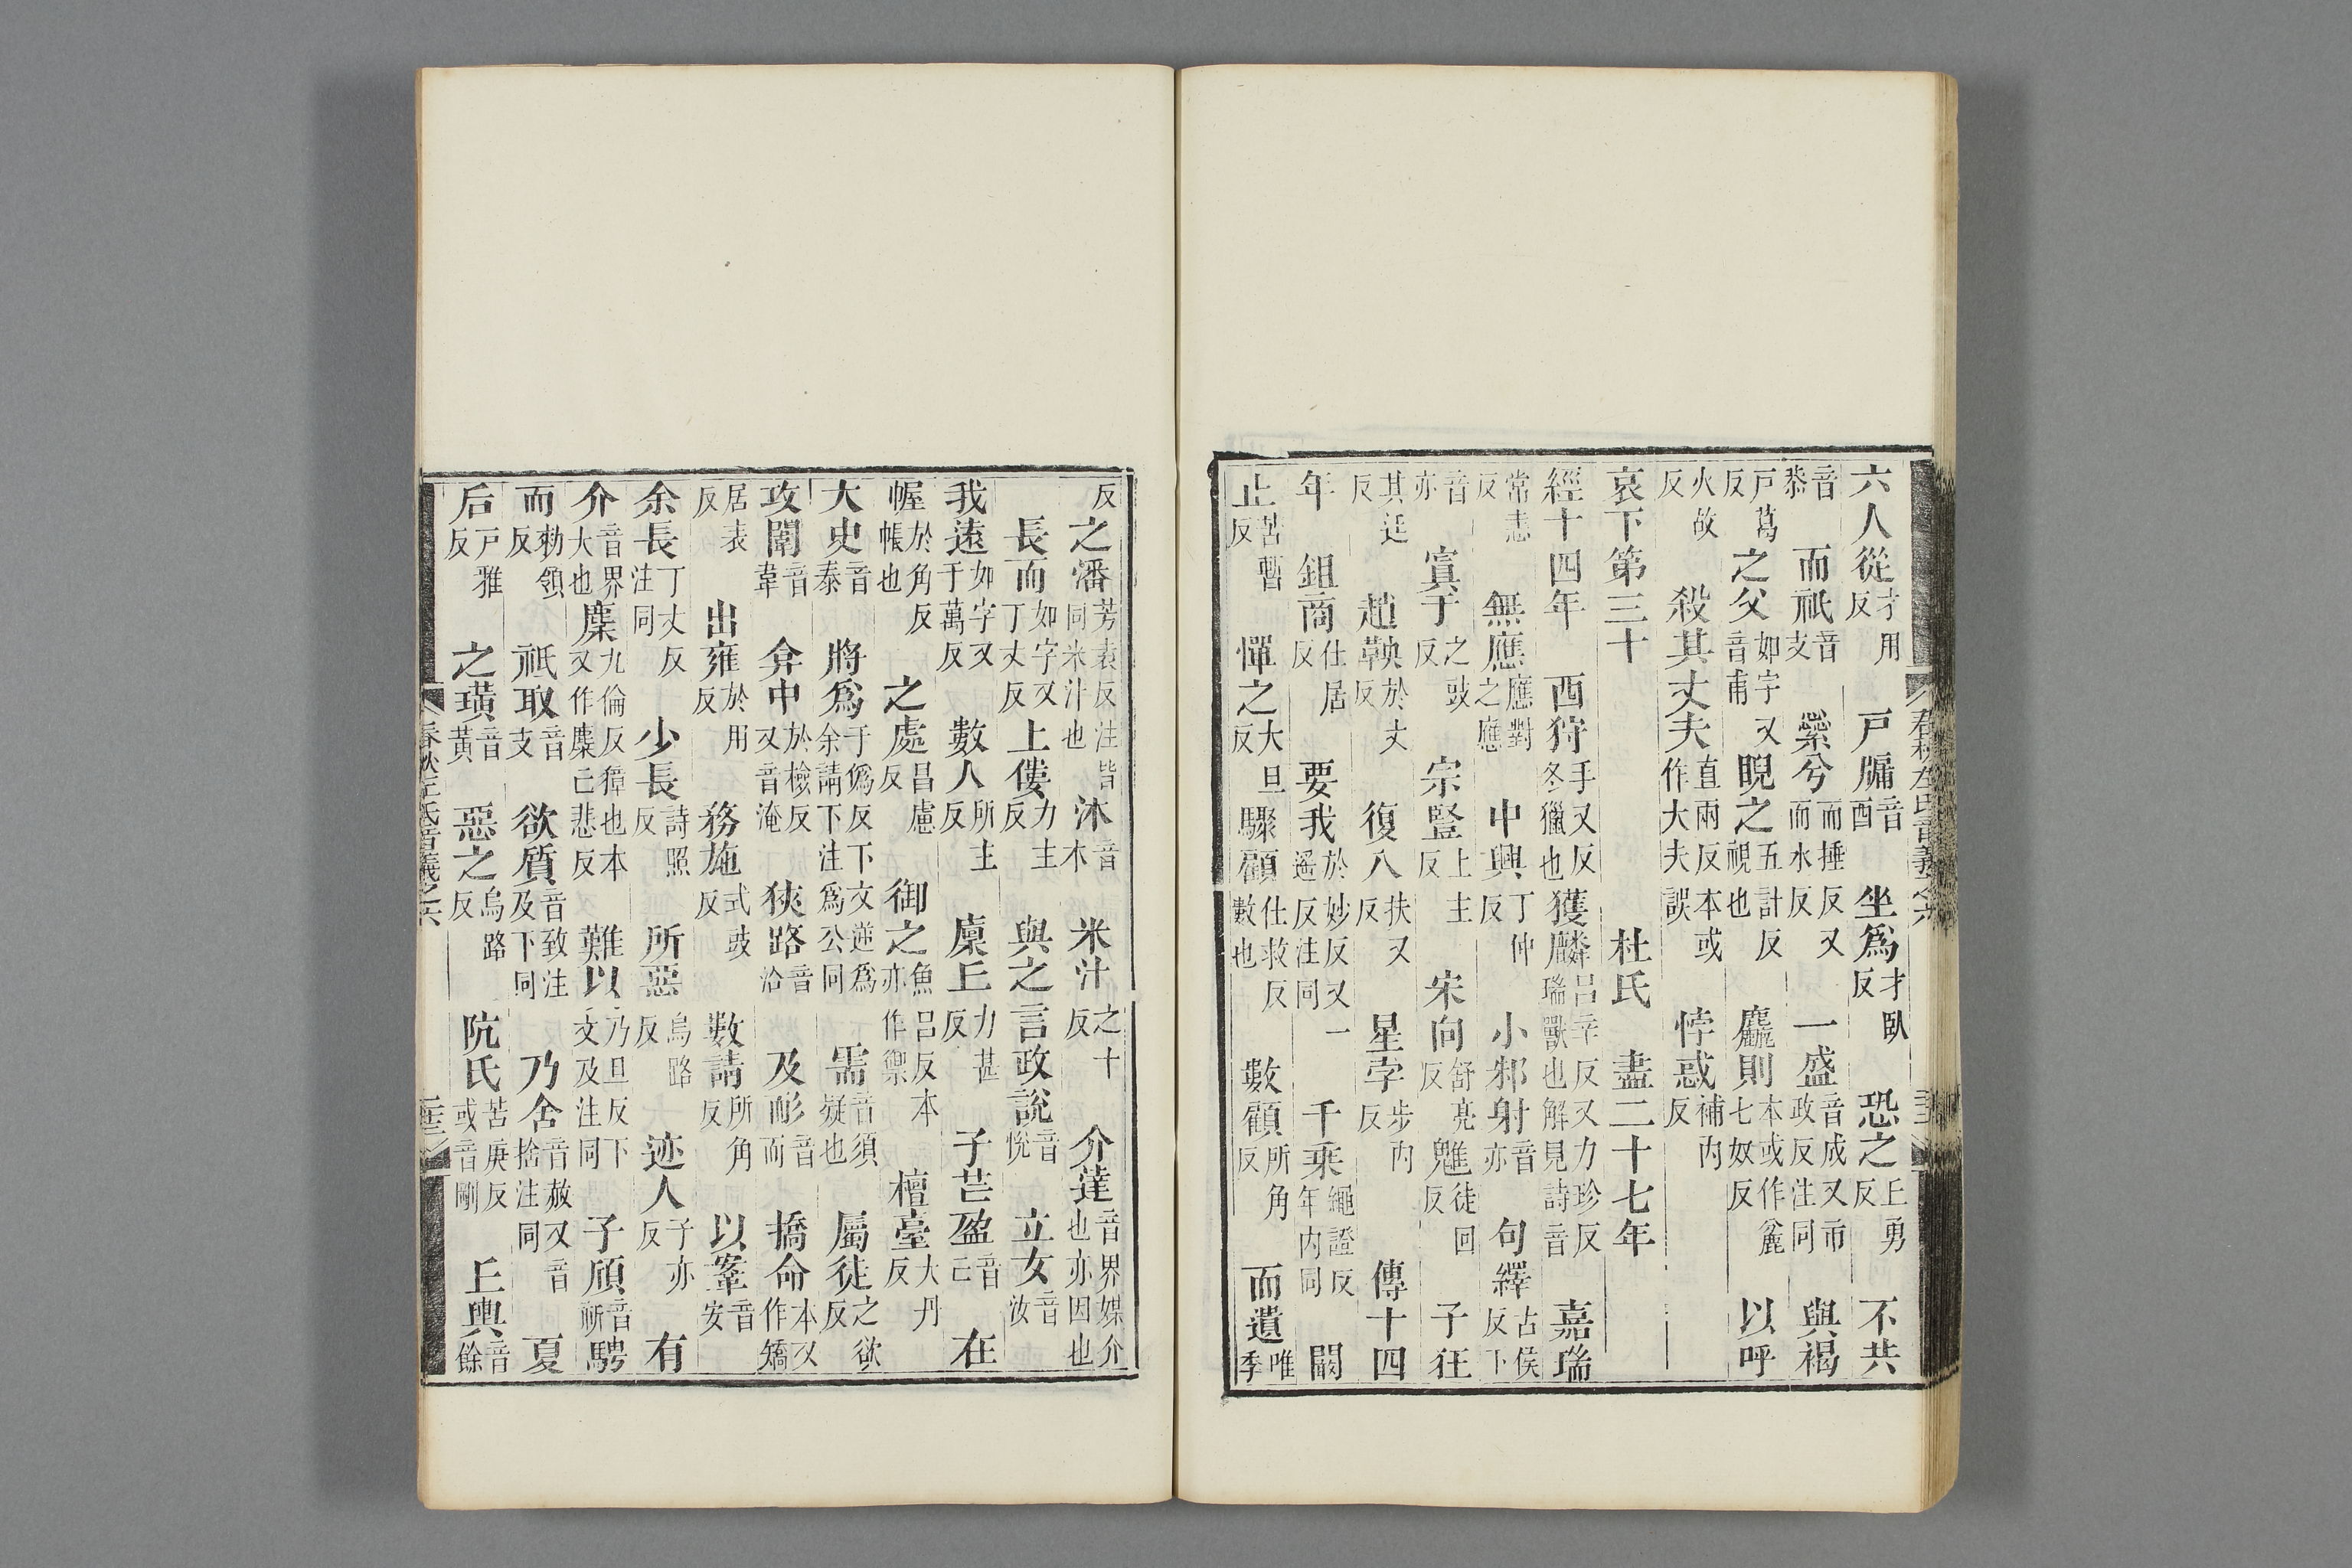 六人從才用反　戶牖音酉　坐爲才臥反　恐之丘勇反　不共
音恭　而祇音支　縈兮而捶反又而水反　一盛音成又市政反注同　與褐
戶葛反　之父如字又音甫　睨之五計反視也　麤則本或作麄七奴反　以呼
火故反　殺其丈夫直兩反本或作大夫誤　悖惑補內反
哀下第三十　杜氏　盡二十七年
經十四年　西狩手又反冬獵也　獲麟呂辛反又力珍反瑞獸也解見詩音　嘉瑞
常恚反　無應應對之應　中興丁仲反　小邾射音亦　句繹古侯反下
音亦　寘于之豉反　宗豎上主反　宋向舒亮反　魋徒回反　子狂
其廷反　趙鞅於丈反　復入扶又反　星孛步內反　傳十四
年　鉏商仕居反　要我於妙反又一遥反注同　千乘繩證反年內同　闞
止苦暫反　憚之大旦反　驟顧仕救反數也　數顧所角反　而遺唯季
反　之潘芳袁反注皆同米汁也　沐音木　米汁之十反　介達音界媒介也亦因也
長而如字又丁丈反　上僂力主反　與之言政說音悅　立女音汝
我遠如字又于萬反　數人所主反　廩丘力甚反　子芒盈音己　在
幄於角反帳也　之處昌慮反　御之魚呂反本亦作禦　檀臺大丹反
大史音泰　將爲于僞反下文逆爲余請下注爲公同　需音須疑也　屬徒之欲反
攻闈音韋　弇中於檢反又音淹　狹路音洽　及耏音而　撟命本又作矯
居表反　出雍於用反　務施式豉反　數請所角反　以鞌音安
余長丁丈反注同　少長詩照反　所惡烏路反　迹人子亦反　有
介音界大也　麇九倫反獐也本又作麋亡悲反　難以乃旦反下文及注同　子頎音祈　騁
而勑領反　祇取音支　欲質音致注及下同　乃舍音赦又音捨注同　夏
后戶雅反　之璜音黃　惡之烏路反　阬氏苦庚反或音剛　丘輿音餘